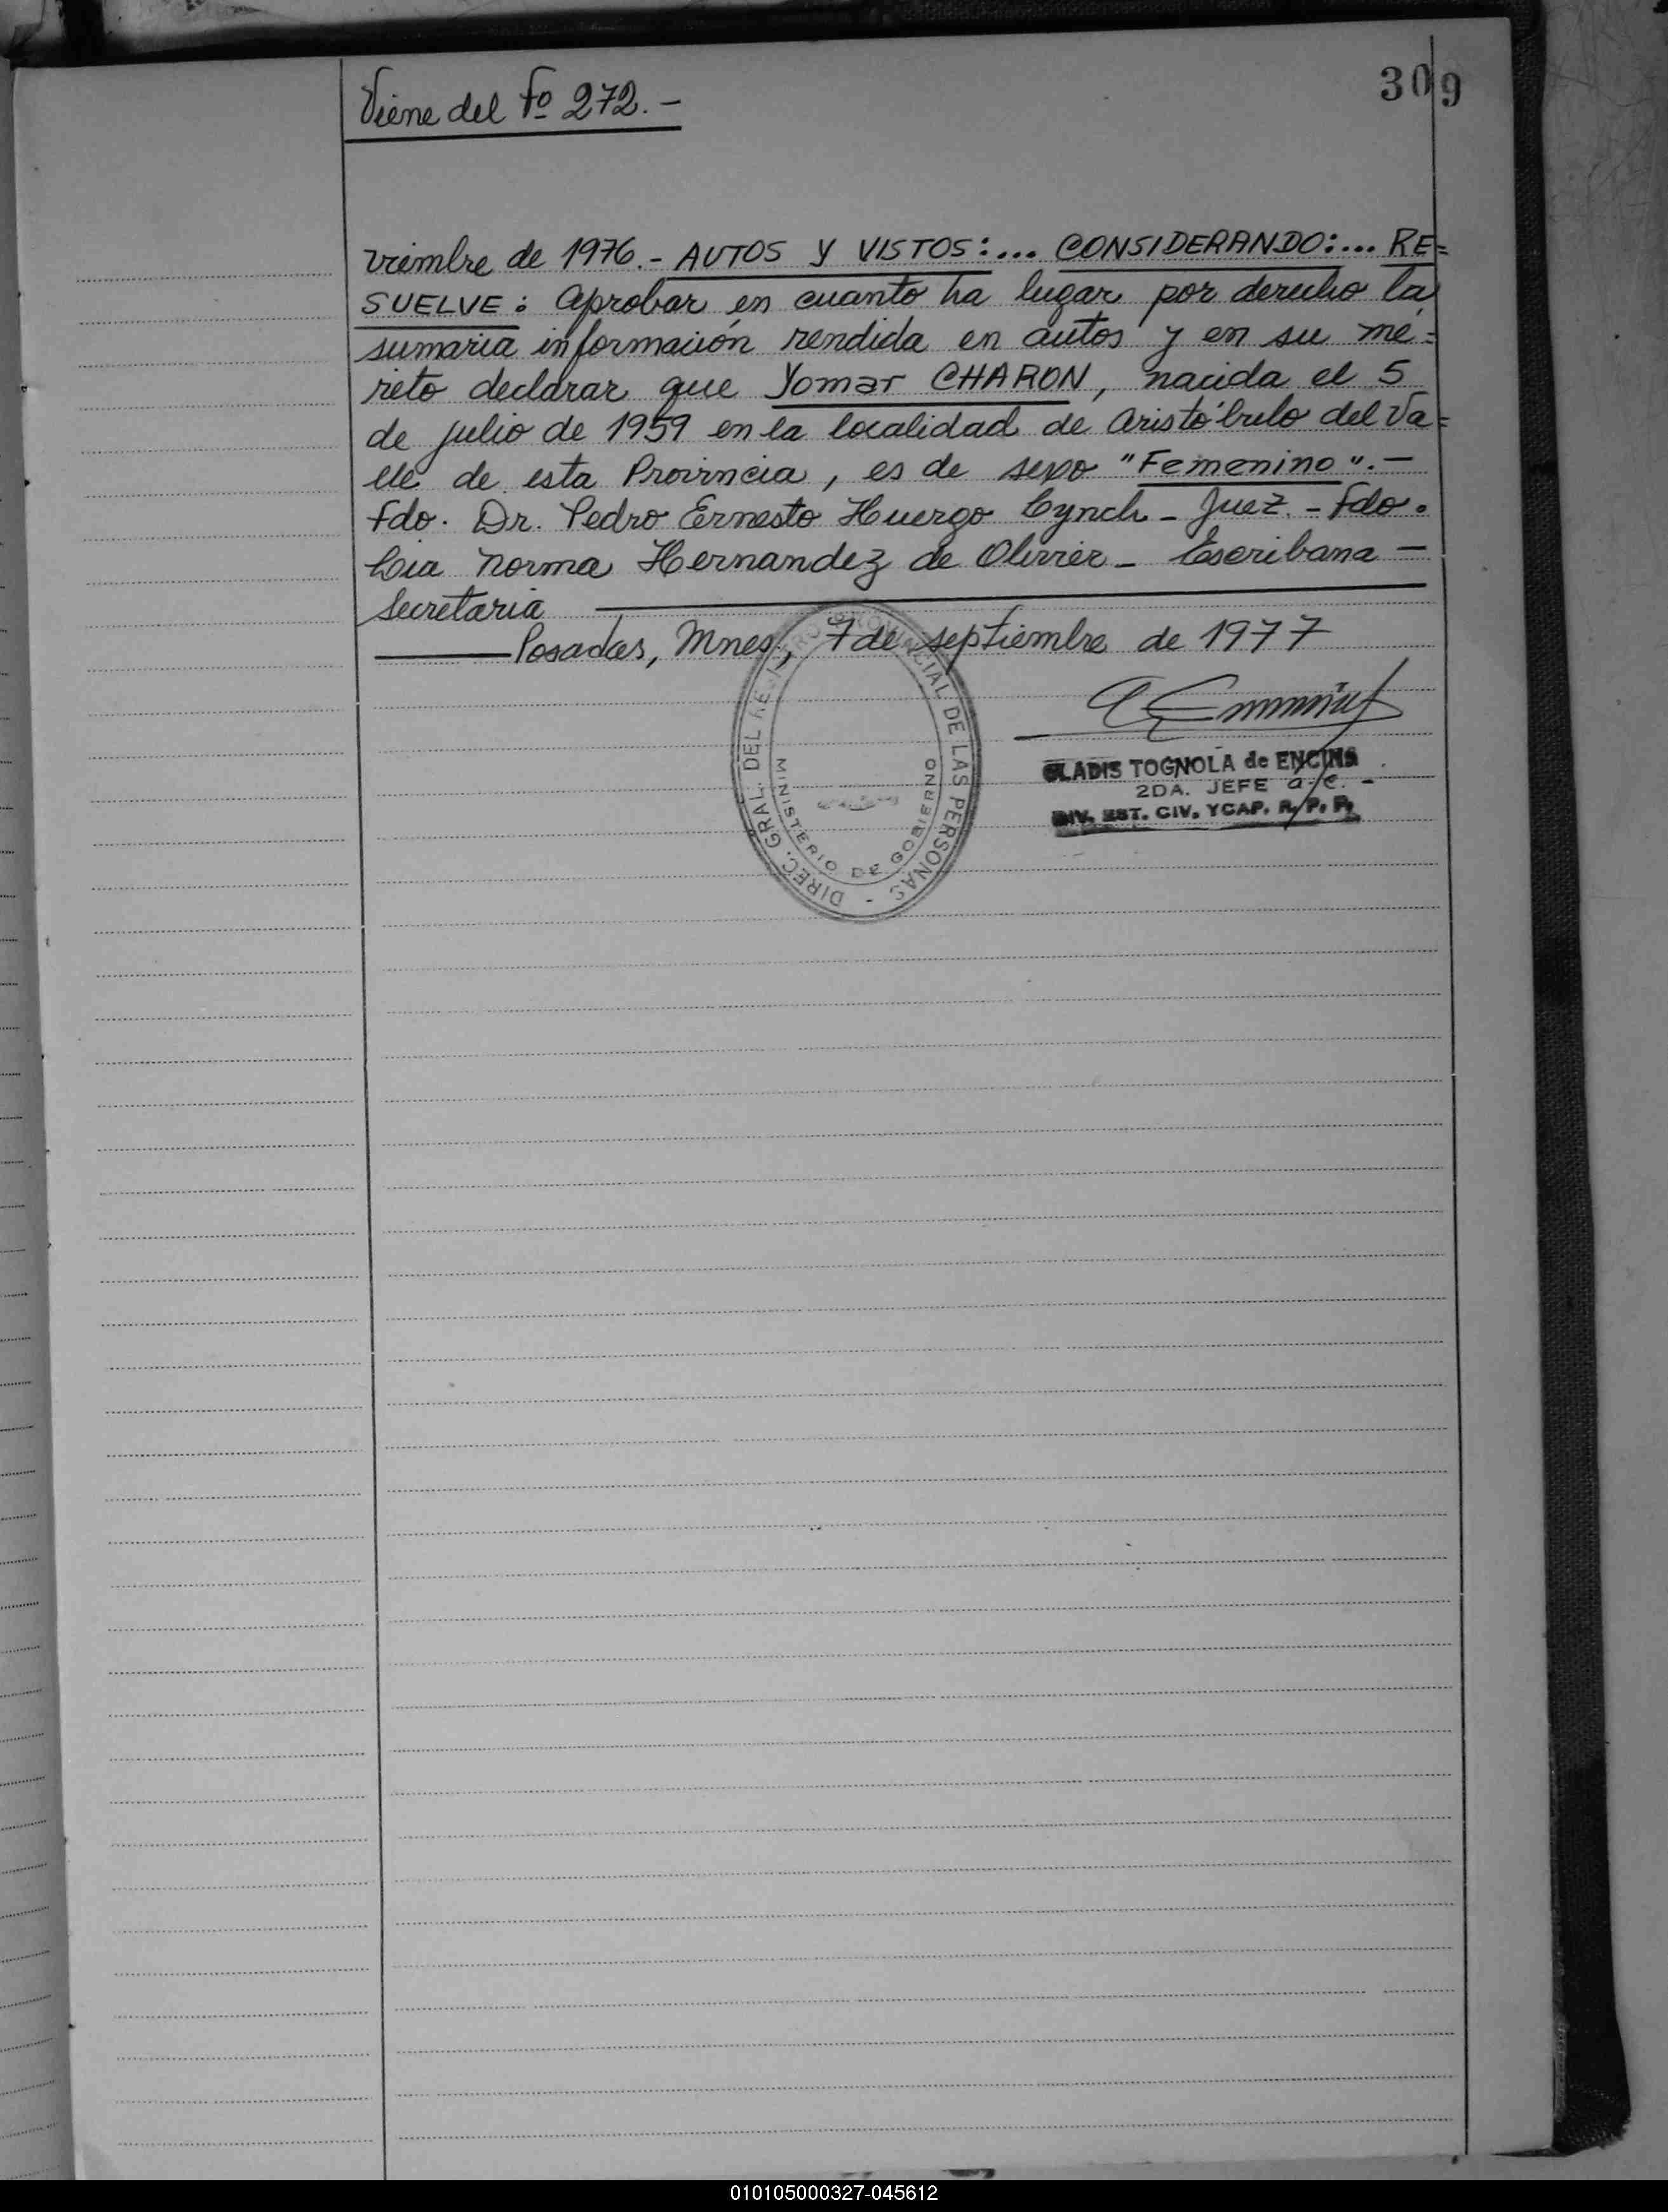 309
Viene del Fº 272.-
viembre de 1976.- AUTOS Y VISTOS:... CONSIDERANDO:... RE=
SUELVE: Aprobar en cuanto ha lugar por derecho la
sumaria información rendida en autos y en su mé=
rito declarar que Yomar CHARON, nacida el 5
de julio de 1959 en la localidad de Aristóbulo del Va=
lle de esta Provincia, es de sexo "Femenino".-
Fdo. Dr. Pedro Ernesto Huergo Lynch - Juez.- Fdo.
Lia Norma Hernandez de Olivier - Escribana -
Secretaria
Posadas, Mnes, 7 de septiembre de 1977
DIREC. GRAL. DEL REGISTRO PROVINCIAL DE LAS PERSONAS -
MINISTERIO DE GOBIERNO
GLADIS TOGNOLA de ENCINA
2DA. JEFE a/c. -
DIV. EST. CIV. YCAP. R. P. P.
010105000327-045612